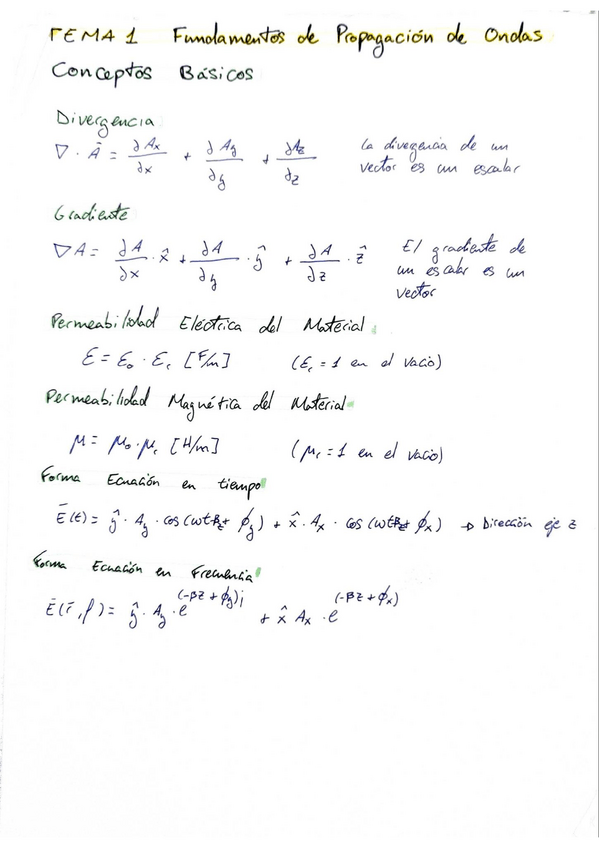 TEMA 1 Fundamentos de Propagación de Ondas
Conceptos Básicos
Divergencia
∇ · Ā = ∂Ax/∂x + ∂Ay/∂y + ∂Az/∂z
La divergencia de un
vector es un escalar
Gradiente
∇A = ∂A/∂x · x̂ + ∂A/∂y · ŷ + ∂A/∂z · ẑ
El gradiente de
un escalar es un
vector
Permeabilidad Eléctrica del Material
Ɛ = Ɛo · Ɛr [F/m] (Ɛr = 1 en el vacío)
Permeabilidad Magnética del Material
μ = μo · μr [H/m] (μr = 1 en el vacío)
Forma Ecuación en tiempo
Ē(t) = ŷ · Ay · cos(wt βz + ϕy) + x̂ · Ax · cos(wt βz + ϕx) → Dirección eje z
Forma Ecuación en Frecuencia
Ē(r̄, f) = ŷ · Ay · e^(-βz + ϕy)j + x̂ Ax · e^(-βz + ϕx)